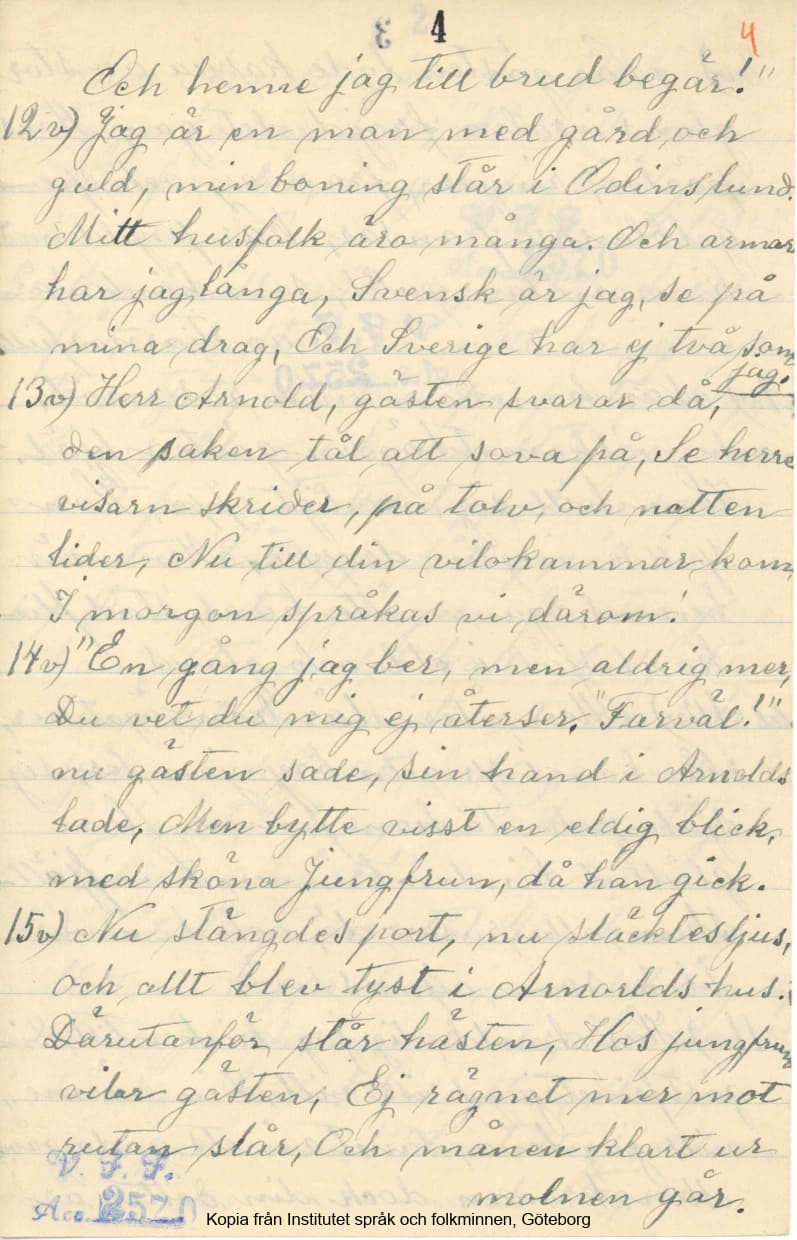 4
4
Och henne jag till brud begär!"
12v) Jag är en man med gård och
guld, min boning står i Odinslund.
Mitt husfolk äro många. Och armar
har jag långa, Svensk är jag, se på
mina drag, Och Sverige har ej två som
jag.
13v) Herr Arnold, gästen svarar då,
den saken tål att sova på, Se herre
visarn skrider, på tolv, och natten
lider, Nu till din vilokammar kom,
I morgon språkas vi därom!
14v) "En gång jag ber, men aldrig mer,
Du vet du mig ej återser. "Farväl!"
nu gästen sade, sin hand i Arnolds
lade, Men bytte visst en eldig blick,
med sköna Jungfrun, då han gick.
15v) Nu stängdes port, nu släcktes ljus,
och allt blev tyst i Arnorlds hus.
Därutanför står hästen, Hos jungfrun
vilar gästen, Ej rägnet mer mot
rutan slår, Och månen klart ur
molnen går.
V. F. F.
Acc. 2570
Kopia från Institutet språk och folkminnen, Göteborg